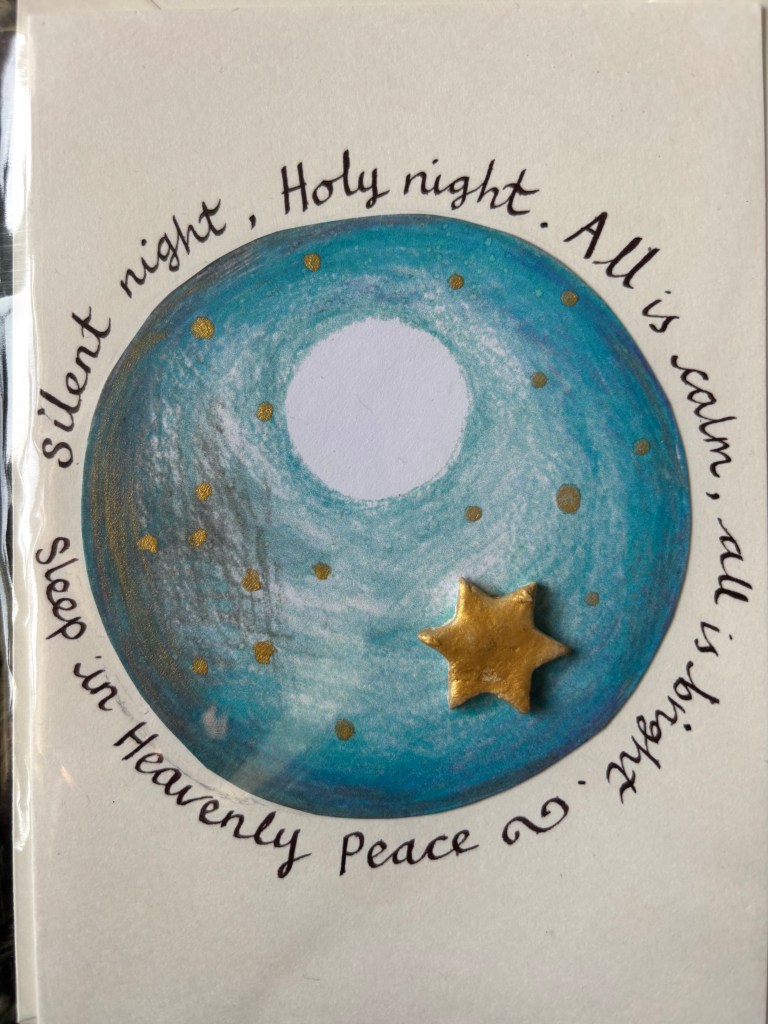 Silent night, Holy night. All is calm, all is bright.
Sleep in Heavenly Peace